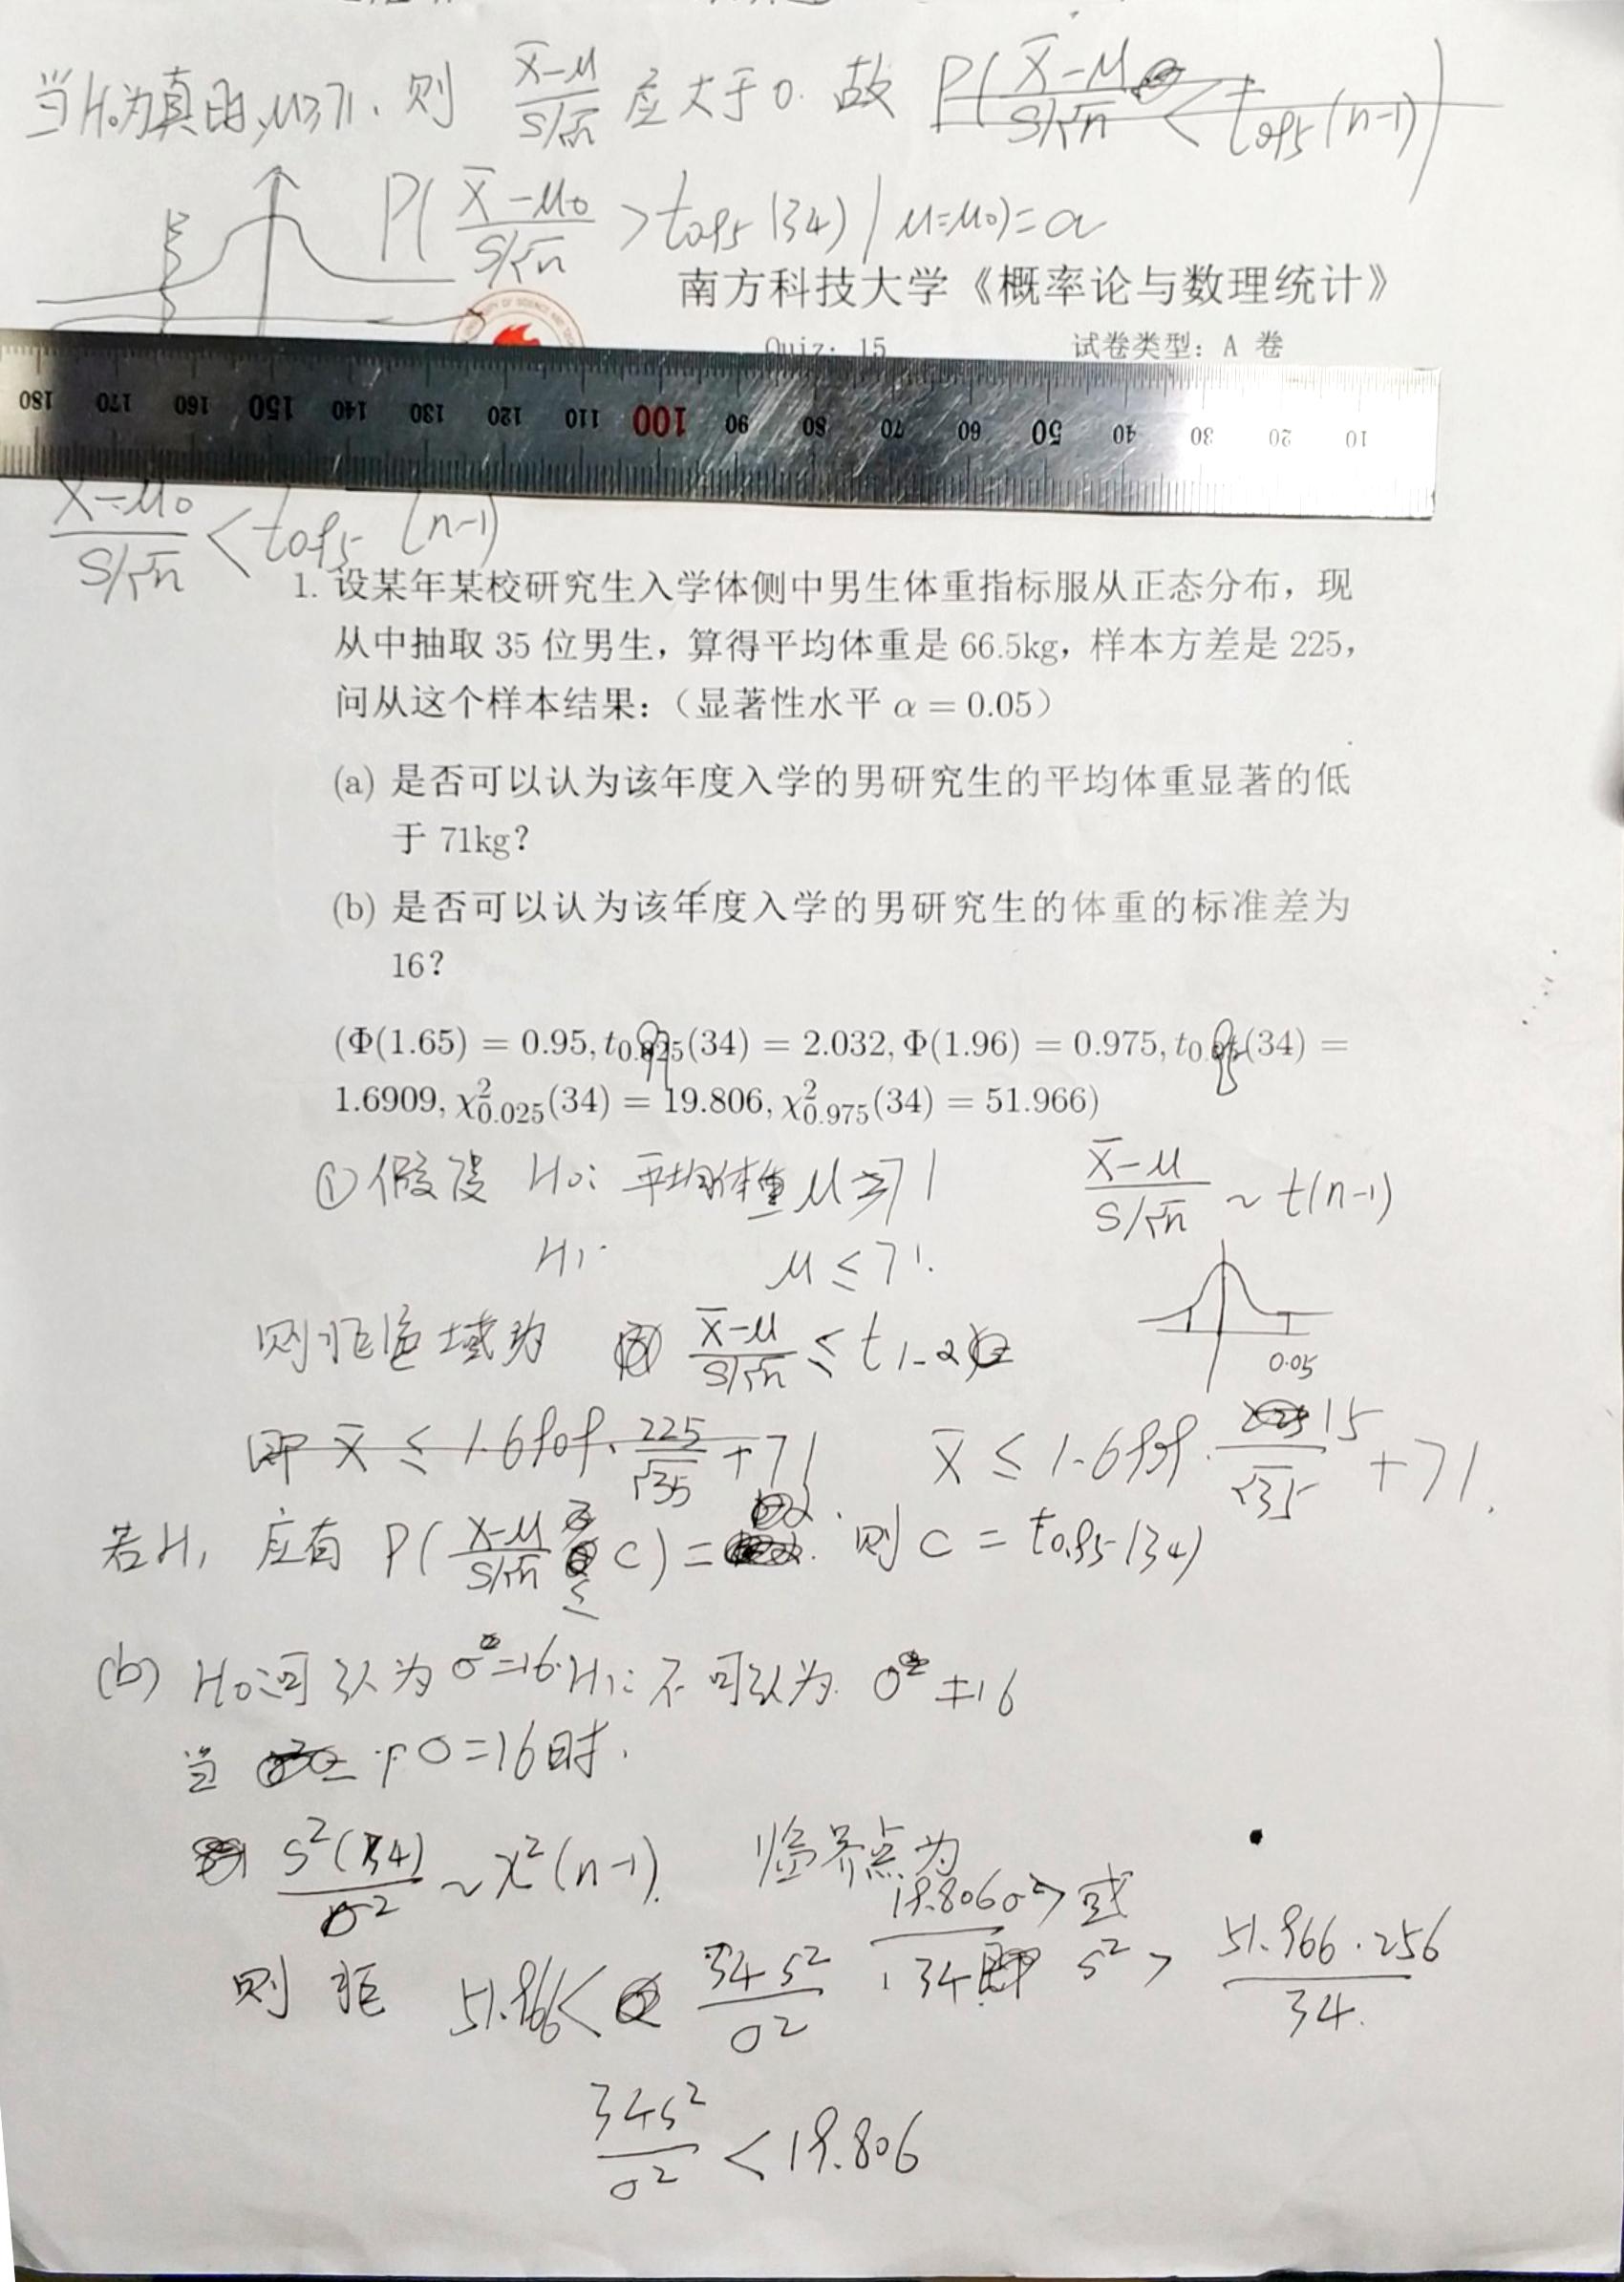 当H₀为真时,μ≥71. 则 X̄-μ/S/√n 应大于0. 故 P(X̄-μ/S/√n < t0.95(n-1))
P(X̄-μ₀/S/√n > t0.95(34) | μ=μ₀)=α
南方科技大学《概率论与数理统计》
Quiz: 15 试卷类型：A 卷
180 170 160 150 140 130 120 110 100 90 80 70 60 50 40 30 20 10
X̄-μ₀/S/√n < t0.95 (n-1)
1. 设某年某校研究生入学体侧中男生体重指标服从正态分布，现
从中抽取 35 位男生，算得平均体重是 66.5kg，样本方差是 225，
问从这个样本结果：（显著性水平 α = 0.05）
(a) 是否可以认为该年度入学的男研究生的平均体重显著的低
于 71kg？
(b) 是否可以认为该年度入学的男研究生的体重的标准差为
16？
(Φ(1.65) = 0.95, t0.975(34) = 2.032, Φ(1.96) = 0.975, t0.95(34) =
1.6909, χ²0.025(34) = 19.806, χ²0.975(34) = 51.966)
① 假设 H₀: 平均体重 μ≥71 X̄-μ/S/√n ~ t(n-1)
H₁: μ≤71.
则拒绝域为 X̄-μ/S/√n ≤ t1-α
0.05
即 X̄ ≤ 1.6909·225/√35+71 X̄ ≤ ·15/√35+71.
若H₁ 应有 P(X-μ/S/√n ≤ C)= 则 C = t0.95(34)
(b) H₀:可认为 σ=16 H₁:不可认为 σ≠16
当 σ=16时.
S²(34)/σ² ~ χ²(n-1). 临界点为
则 拒 51.966< 34S²/σ² 19.806σ²/34 或 即 S²> 51.966·256/34.
34S²/σ² < 19.806